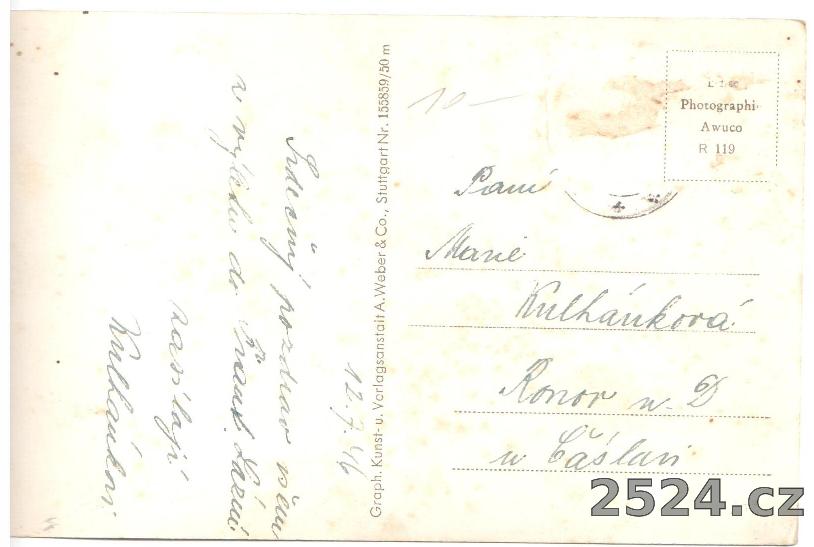 12.7.46
Srdečný pozdrav všem
z výletu do Frant. Lázní
zasílají
Kulhánkovi
Graph. Kunst- u. Verlagsanstalt A. Weber & Co., Stuttgart Nr. 155859/50 m
10 —
Photographi
Awuco
R 119
Paní
Marie
Kulhánková
Ronov n. D
u Čáslavi
2524.cz